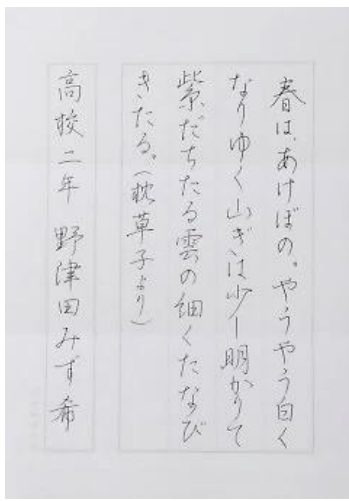 春は、あけぼの。やうやう白く
なりゆく山ぎは少し明かりて
紫だちたる雲の細くたなび
きたる。（枕草子より）
高校二年 野津田みず希